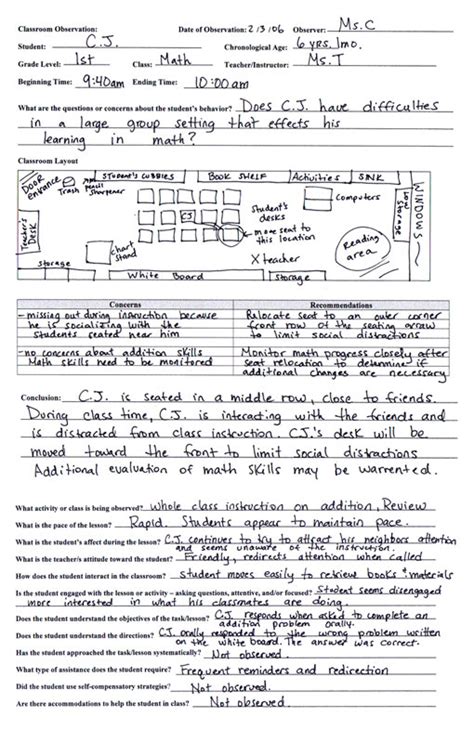 Classroom Observation: Date of Observation: 2/3/06 Observer: Ms.C
Student: C.J. Chronological Age: 6 yrs. 1mo.
Grade Level: 1st Class: Math Teacher/Instructor: Ms.T
Beginning Time: 9:40am Ending Time: 10:00am
What are the questions or concerns about the student's behavior? Does C.J. have difficulties
in a large group setting that effects his
learning in math?
Classroom Layout
DOOR Entrance
Trash
Pencil Sharpener
STUDENT'S CUBBIES
BOOK SHELF
Activities
SINK
Computers
Storage
WINDOWS
CJ
Student's desks
move seat to this location
Reading area
Teacher's Desk
chart stand
X teacher
Storage
White Board
Storage
Concerns Recommendations
- missing out during instruction because
he is socializing with the
students seated near him
Relocate seat to an outer corner
front row of the seating array
to limit social distractions
- no concerns about addition skills
Math skills need to be monitored
Monitor math progress closely after
seat relocation to determine if
additional changes are necessary
Conclusion: C.J. is seated in a middle row, close to friends.
During class time, C.J. is interacting with the friends and
is distracted from class instruction. C.J.'s desk will be
moved toward the front to limit social distractions
Additional evaluation of math skills may be warrented.
What activity or class is being observed? Whole class instruction on addition, Review
What is the pace of the lesson? Rapid. Students appear to maintain pace.
What is the student's affect during the lesson? C.J. continues to try to attract his neighbors attention
and seems unaware of the instruction.
What is the teacher's attitude toward the student? Friendly, redirects attention when called
How does the student interact in the classroom? Student moves easily to retrieve books & materials
Is the student engaged with the lesson or activity – asking questions, attentive, and/or focused? Student seems disengaged
more interested in what his classmates are doing.
Does the student understand the objectives of the task/lesson? C.J. responds when asked to complete an
addition problem orally.
Does the student understand the directions? C.J. orally responded to the wrong problem written
on the white board. The answer was correct.
Has the student approached the task/lesson systematically? Not observed
What type of assistance does the student require? Frequent reminders and redirection
Did the student use self-compensatory strategies? Not observed
Are there accommodations to help the student in class? Not observed.